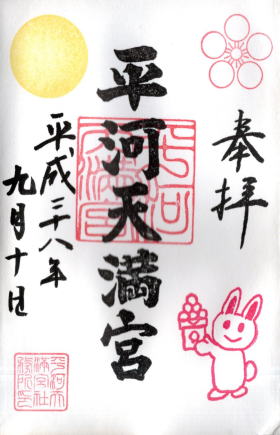 奉拝
平河天満宮
平成二十八年
九月十日